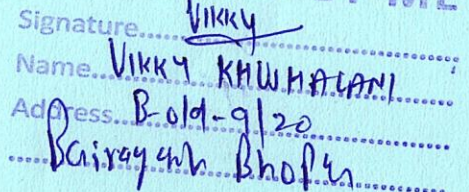 Signature... Vikky
Name... VIKKY KHWHALANI
Address... B-old-9/20
Bairagarh Bhopal